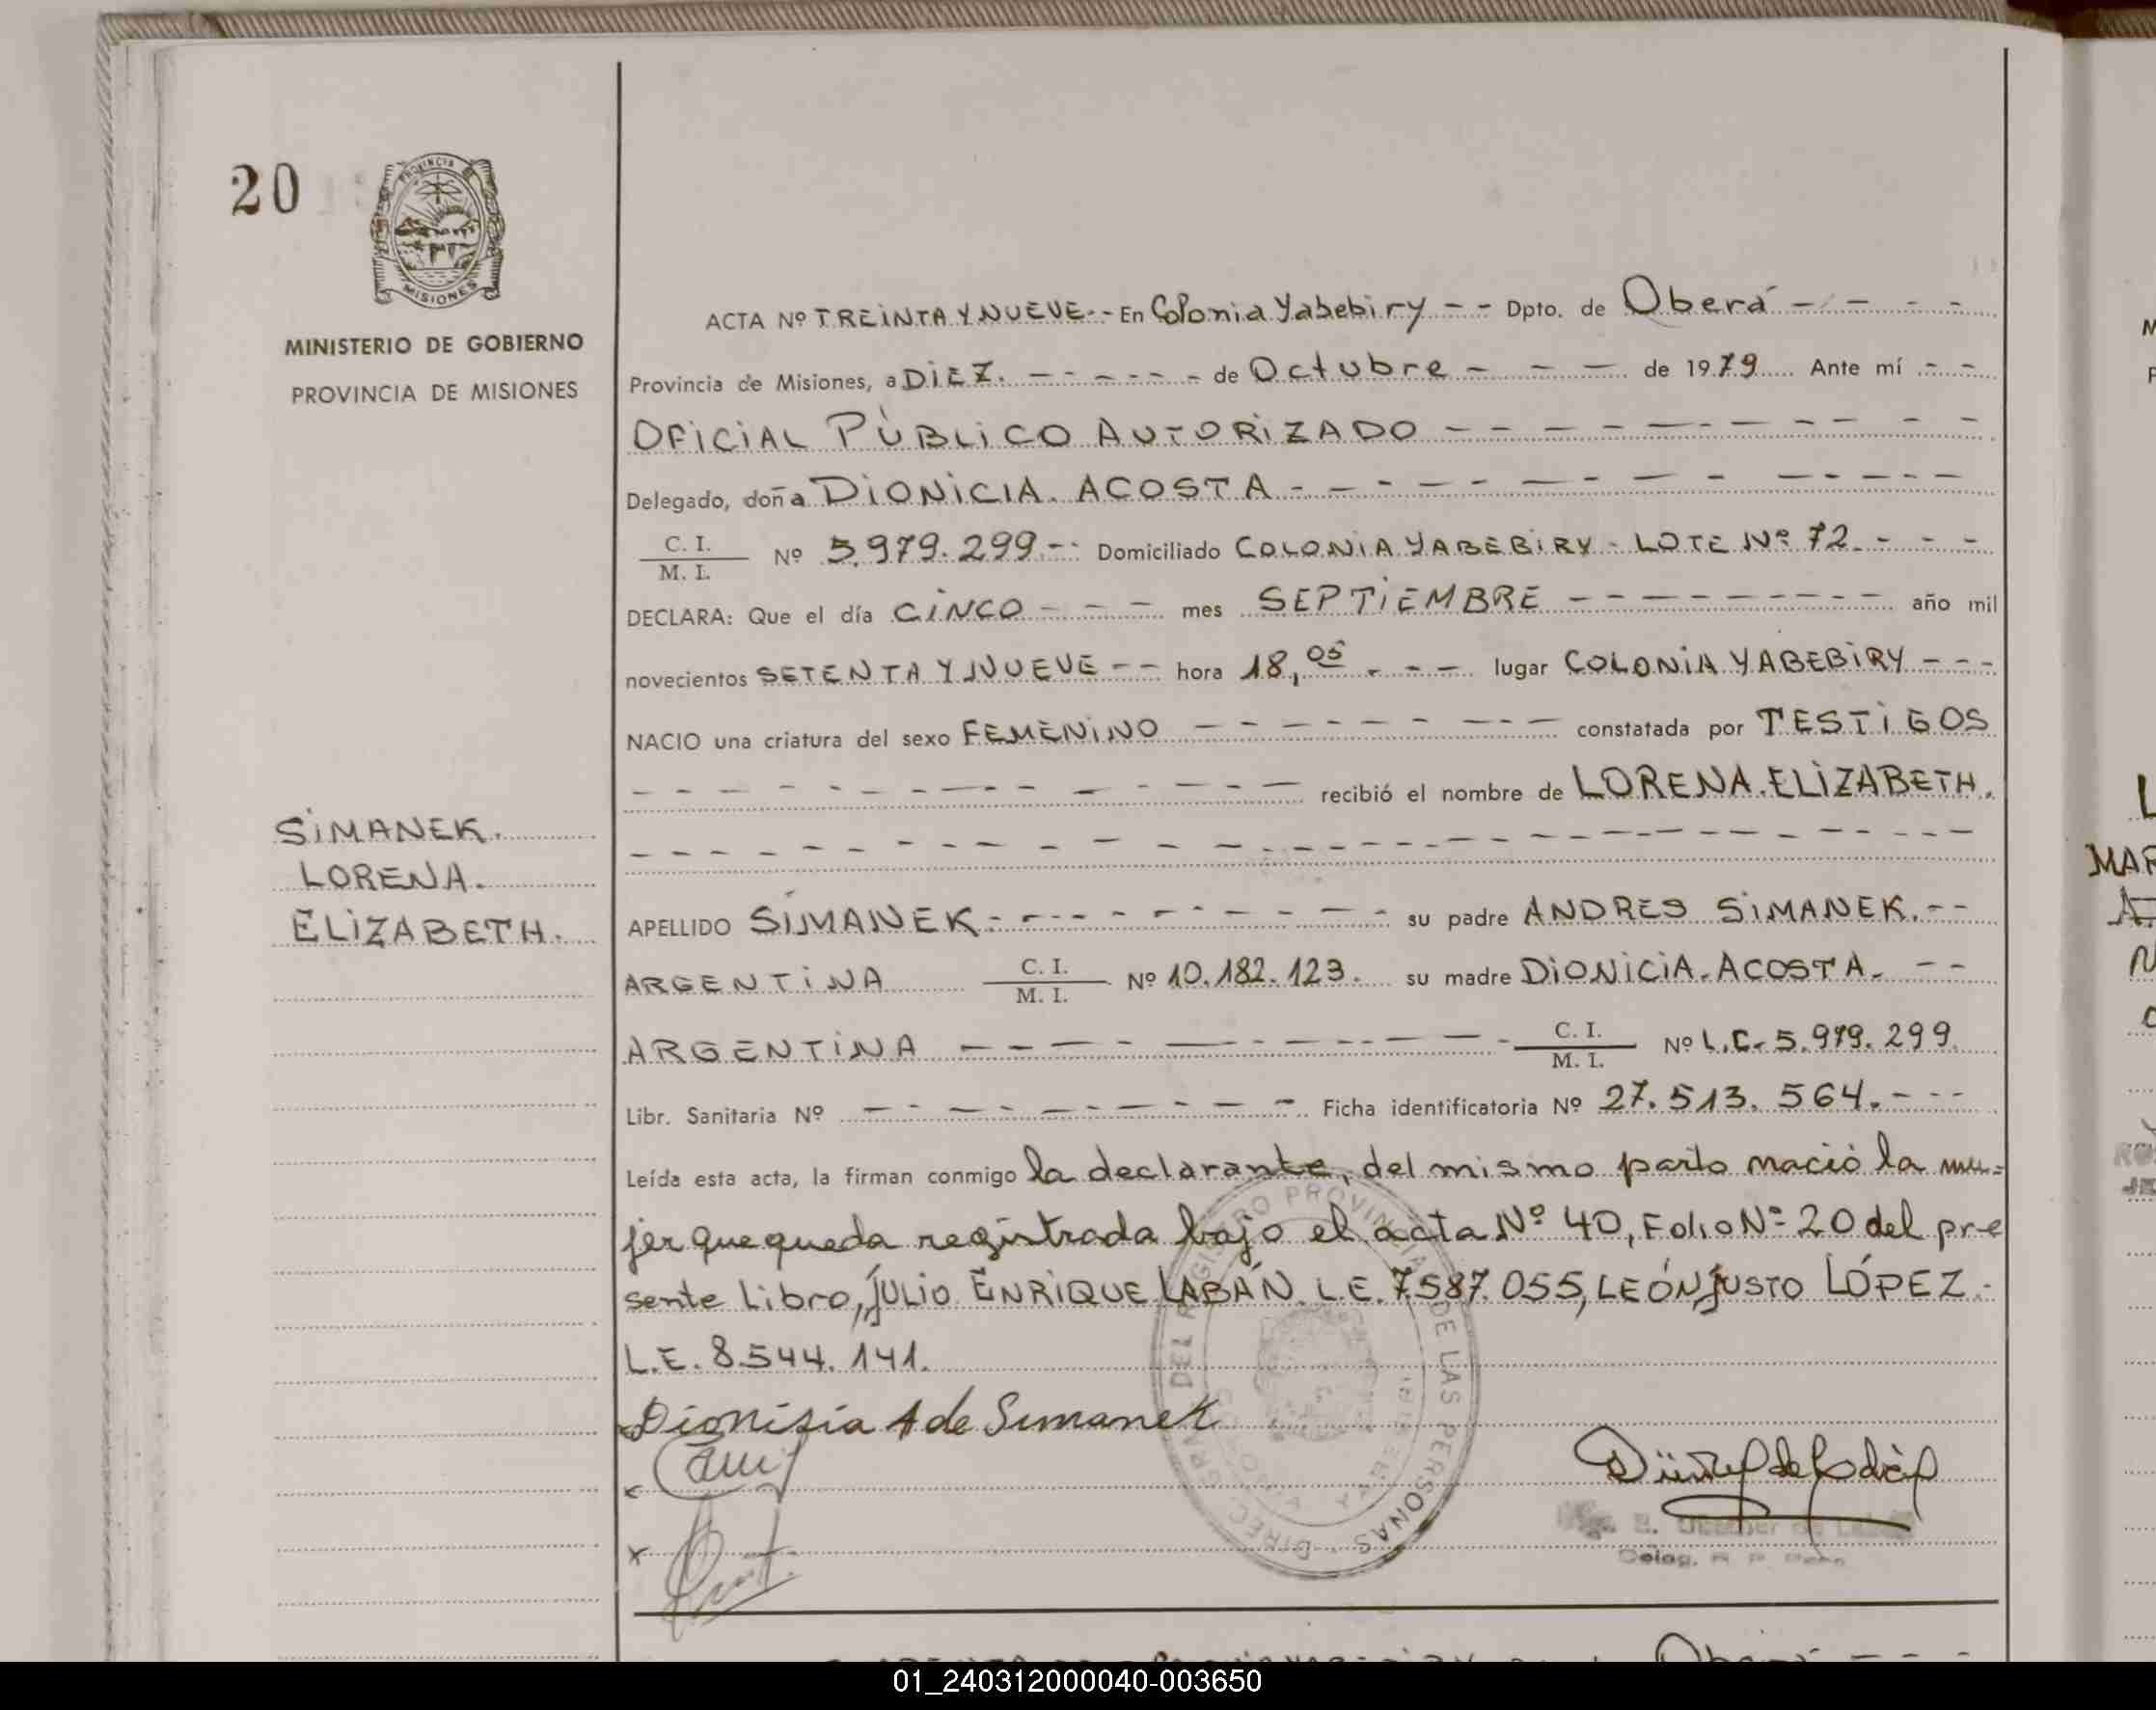 20
PROVINCIA
MISIONES
MINISTERIO DE GOBIERNO
PROVINCIA DE MISIONES
SIMANEK.
LORENA.
ELIZABETH.
ACTA Nº TREINTA Y NUEVE.-- En Colonia Yabebiry -- Dpto. de Oberá - - - - -
Provincia de Misiones, a DIEZ. - - - - - - de Octubre - - - de 1979 Ante mí - -
OFICIAL PÚBLICO AUTORIZADO - - - - - - - - - - -
Delegado, doña DIONICIA. ACOSTA - - - - - - - - - - - - - -
C. I. / M. I. Nº 5.979.299.-- Domiciliado COLONIA YABEBIRY - LOTE Nº 72. - - -
DECLARA: Que el día CINCO - - - mes SEPTIEMBRE - - - - - - - - - - año mil
novecientos SETENTA Y NUEVE -- hora 18,05 - - - lugar COLONIA YABEBIRY - - -
NACIO una criatura del sexo FEMENINO - - - - - - - - - constatada por TESTIGOS
- - - - - - - - - - - - - recibió el nombre de LORENA. ELIZABETH.
- - - - - - - - - - - - - - - - - - - - - - - -
APELLIDO SIMANEK. - - - - - - - - - - su padre ANDRES SIMANEK. --
ARGENTINA C. I. / M. I. Nº 10.182.123. su madre DIONICIA. ACOSTA. - --
ARGENTINA - - - - - - - - - - - C. I. / M. I. Nº L.C. 5.979.299.
Libr. Sanitaria Nº - - - - - - - - - - Ficha identificatoria Nº 27.513.564. - - -
Leída esta acta, la firman conmigo la declarante, del mismo parto nació la mu=
jer que queda registrada bajo el acta Nº 40, Folio Nº 20 del pre
sente Libro, JULIO ENRIQUE LABÁN. L.E. 7.587.055, LEÓN JUSTO LÓPEZ.-
L.E. 8.544.141.
Dionisia A de Simanek
DIREC. GRAL. DEL REGISTRO PROVINCIAL DE LAS PERSONAS
01_240312000040-003650